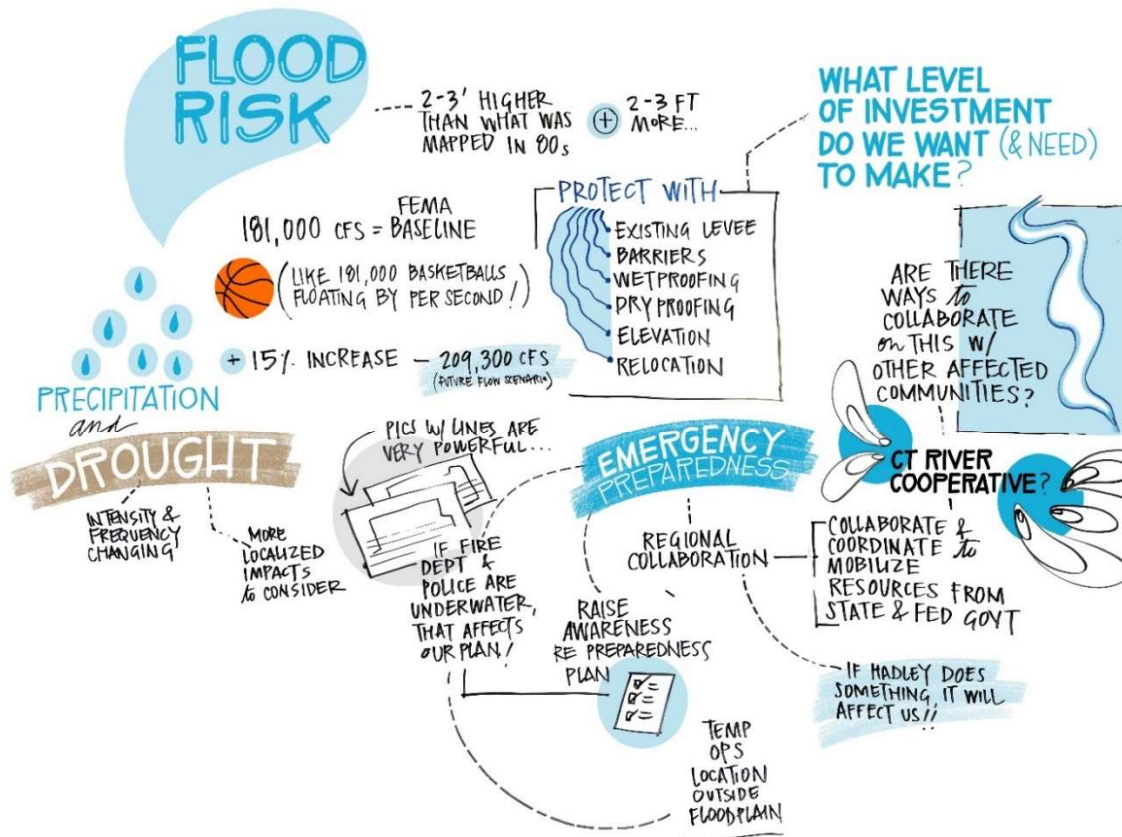 FLOOD
RISK
2-3' HIGHER
THAN WHAT WAS
MAPPED IN 80s
+
2-3 FT
MORE...
WHAT LEVEL
OF INVESTMENT
DO WE WANT (& NEED)
TO MAKE?
181,000 CFS = FEMA
BASELINE
(LIKE 181,000 BASKETBALLS
FLOATING BY PER SECOND!)
+ 15% INCREASE – 209,300 CFS
(FUTURE FLOW SCENARIO)
PROTECT WITH
EXISTING LEVEE
BARRIERS
WETPROOFING
DRYPROOFING
ELEVATION
RELOCATION
ARE THERE
WAYS to
COLLABORATE
on THIS W/
OTHER AFFECTED
COMMUNITIES?
CT RIVER
COOPERATIVE?
PRECIPITATION
and
DROUGHT
INTENSITY &
FREQUENCY
CHANGING
MORE
LOCALIZED
IMPACTS
to CONSIDER
PICS W/ LINES ARE
VERY POWERFUL...
IF FIRE
DEPT &
POLICE ARE
UNDERWATER,
THAT AFFECTS
OUR PLAN!
EMERGENCY
PREPAREDNESS
REGIONAL
COLLABORATION
COLLABORATE &
COORDINATE to
MOBILIZE
RESOURCES FROM
STATE & FED GOVT
RAISE
AWARENESS
RE PREPAREDNESS
PLAN
IF HADLEY DOES
SOMETHING, IT WILL
AFFECT US!!
TEMP
OPS
LOCATION
OUTSIDE
FLOODPLAIN